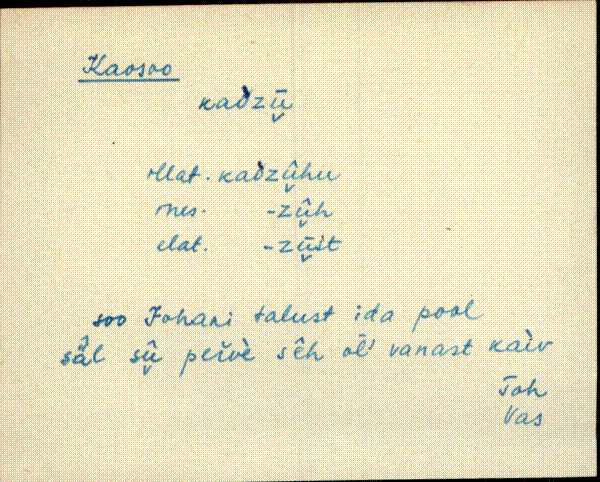 Kaosoo
kadzū̬
illat. kadzû̬hu
ines. -zû̬h
elat. -zū̬st
soo Johani talust ida pool
sä̂l sū̬̂ per̆vè sêh ōĺ vanast kaìv
Joh
Vas